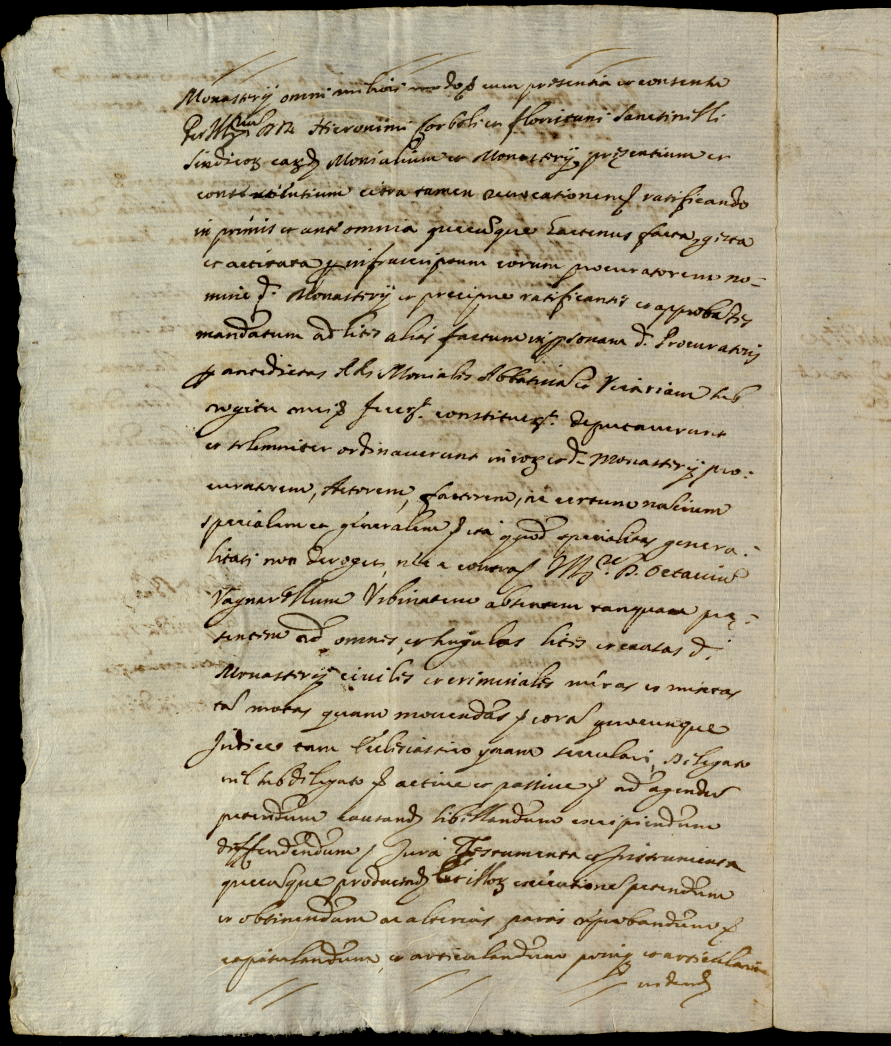 Monasterij omni meliori modo & cum presentia et consensu
Per Hieronimi Corboli et floritani Sanctinelli
Sindicor eard Monialium et Monasterij presentium et
consentientium citra tamen revocationem & ratificando
in primis et ante omnia quecunque hactenus facta, gesta
et actitata p infrascriptum eorum procuratorem no=
mine d. Monasterij et precipue ratificantes et approbates
mandatum ad lites alias factum in psonam d. Procuratoris
p antedictas Moniales Abbatissa et Vicariam sub
rogitu mei constituer. deputaverunt
et solemniter ordinaverunt in et d. Monasterij pro:
curatorem, Actorem, factorem, ac certum nuncium
specialem et generalem & ita quod specialitas genera:
litati non deroget, nec e contra & D. Octaviu
Vagnarellum Urbinatem absentem tanquam pre:
sentem ad omnes, et singulas lites et causas d.
Monasterij civiles et criminales meras et mixtas
ta motas quam movendas & cora quocunque
Judice tam Ecclesiastico quam seculari, Delegato
vel subdelegato & active et passive & ad agendu
petendum causand libellandum excipiendum
deffendendum & Jura Testumenta et Instrumenta
quecusque producend et illor executione petendum
et obtinendum ac alterius partis reprobandum &
capitulandum, et articulandum et articulari
vidend